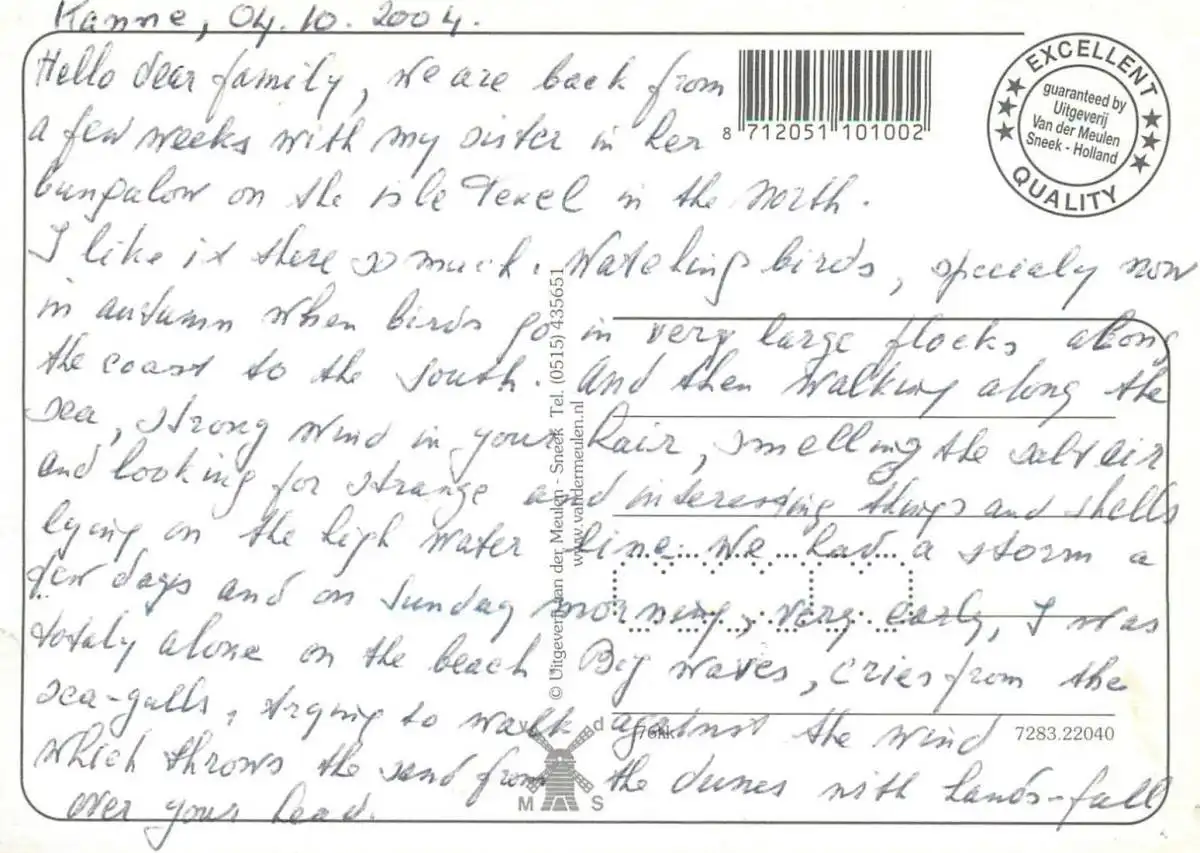 Kanne, 04.10.2004.
Hello dear family, we are back from
a few weeks with my sister in her
bungalow on the isle Texel in the north.
I like it there so much. Watching birds, specialy now
in autumn when birds go in very large flocks along
the coast to the south. And then walking along the
sea, strong wind in your hair, smelling the salt air
and looking for strange and interessing things and shells
lying on the high water line. We had a storm a
few days and on sunday morning, very early, I was
totaly alone on the beach Big waves, cries from the
sea-gulls, trying to walk against the wind
which throws the sand from the dunes with hands-full
over your head.
8 712051 101002
EXCELLENT
guaranteed by
Uitgeverij
Van der Meulen
Sneek - Holland
QUALITY
© Uitgeverij van der Meulen - Sneek Tel. (0515) 435651
www.vandermeulen.nl
7283.22040
v d
M S